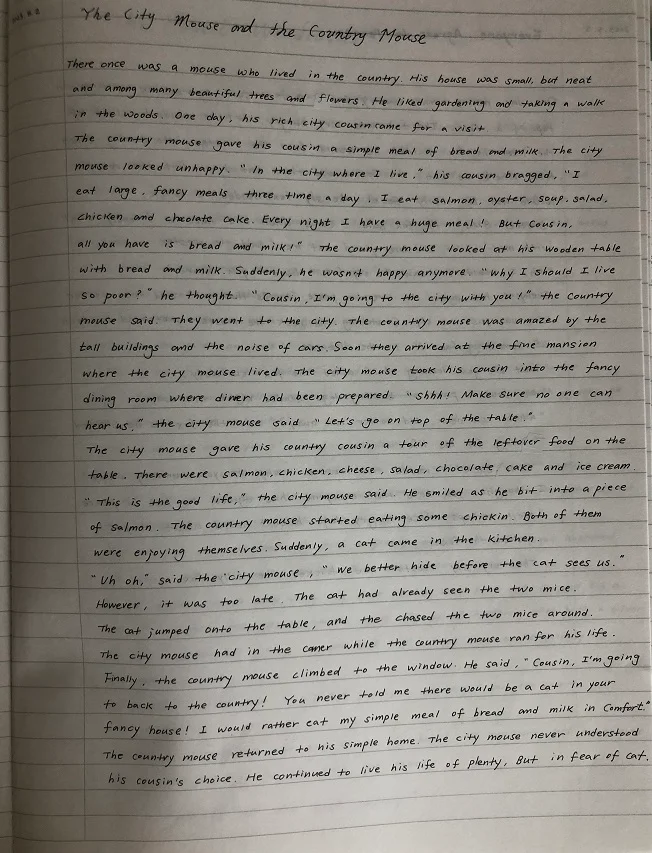 The City Mouse and the Country Mouse
There once was a mouse who lived in the country. His house was small, but neat
and among many beautiful trees and flowers. He liked gardening and taking a walk
in the woods. One day, his rich city cousin came for a visit.
The country mouse gave his cousin a simple meal of bread and milk. The city
mouse looked unhappy. "In the city where I live," his cousin bragged, "I
eat large, fancy meals three time a day. I eat salmon, oyster, soup, salad,
chicken and chocolate cake. Every night I have a huge meal! But Cousin,
all you have is bread and milk!" The country mouse looked at his wooden table
with bread and milk. Suddenly, he wasn't happy anymore. "why I should I live
so poor?" he thought. "Cousin, I'm going to the city with you!" the country
mouse said. They went to the city. The country mouse was amazed by the
tall buildings and the noise of cars. Soon they arrived at the fine mansion
where the city mouse lived. The city mouse took his cousin into the fancy
dining room where diner had been prepared. "shhh! Make sure no one can
hear us," the city mouse said "Let's go on top of the table."
The city mouse gave his country cousin a tour of the leftover food on the
table. There were salmon, chicken, cheese, salad, chocolate, cake and ice cream.
"This is the good life," the city mouse said. He smiled as he bit into a piece
of salmon. The country mouse started eating some chickin. Both of them
were enjoying themselves. Suddenly, a cat came in the kitchen.
"Uh oh," said the city mouse, "we better hide before the cat sees us."
However, it was too late. The cat had already seen the two mice.
The cat jumped onto the table, and the chased the two mice around.
The city mouse had in the caner while the country mouse ran for his life.
Finally, the country mouse climbed to the window. He said, "Cousin, I'm going
to back to the country! You never told me there would be a cat in your
fancy house! I would rather eat my simple meal of bread and milk in Comfort."
The country mouse returned to his simple home. The city mouse never understood
his cousin's choice. He continued to live his life of plenty, But in fear of cat.